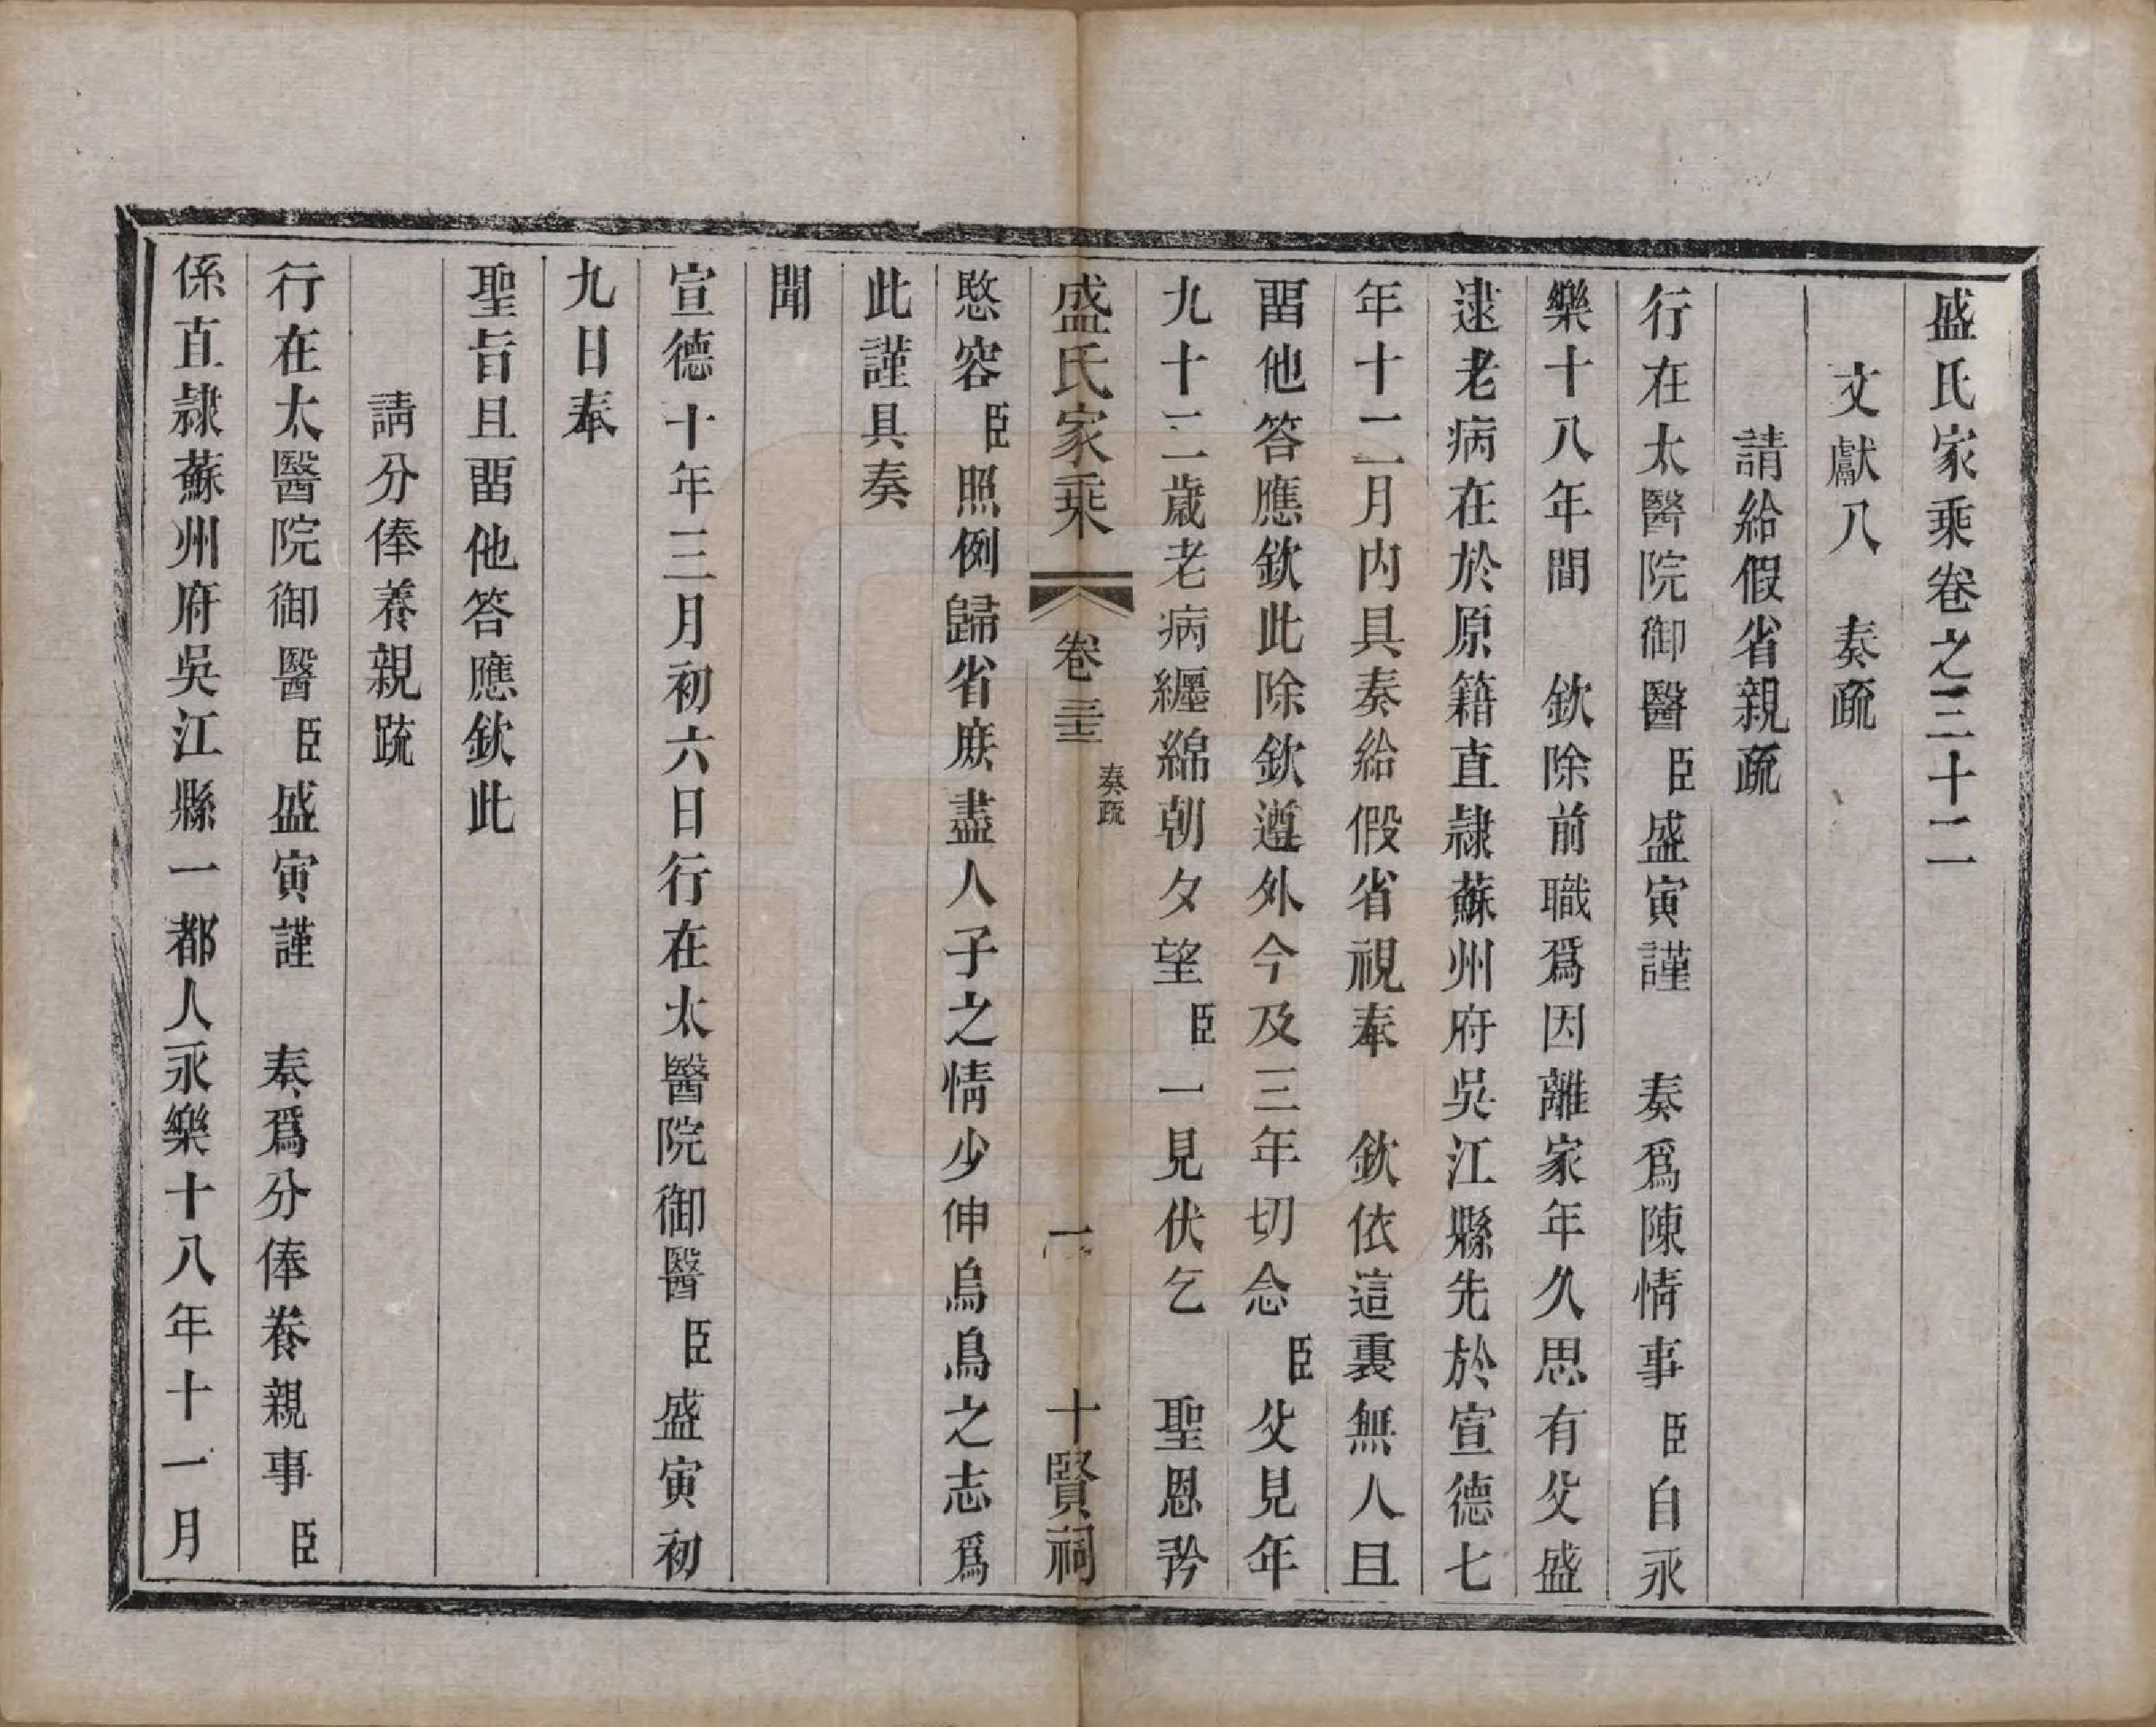 盛氏家乘卷之三十二
文獻八　奏疏
請給假省親疏
行在太醫院御醫臣盛寅謹　奏爲陳情事臣自永
樂十八年間　欽除前職爲因離家年久思有父盛
逮老病在於原籍直隷蘇州府吳江縣先於宣德七
年十二月内具奏給假省視奉　欽依這裏無人且
畱他答應欽此除欽遵外今及三年切念臣父見年
九十二歲老病纒綿朝夕望臣一見伏乞　聖恩矜
盛氏家乘　卷三十二　奏疏　一　十賢祠
愍容臣照例歸省庶盡人子之情少伸烏鳥之志爲
此謹具奏
聞
宣德十年三月初六日行在太醫院御醫臣盛寅初
九日奉
聖旨且畱他答應欽此
請分俸養親疏
行在太醫院御醫臣盛寅謹　奏爲分俸養親事臣
係直隷蘇州府吳江縣一都人永樂十八年十一月